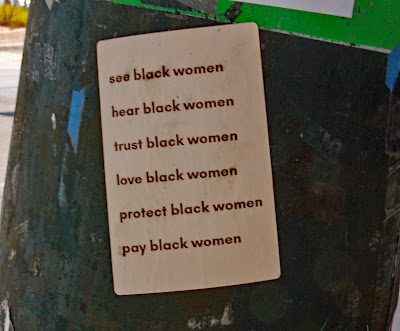 see black women
hear black women
trust black women
love black women
protect black women
pay black women